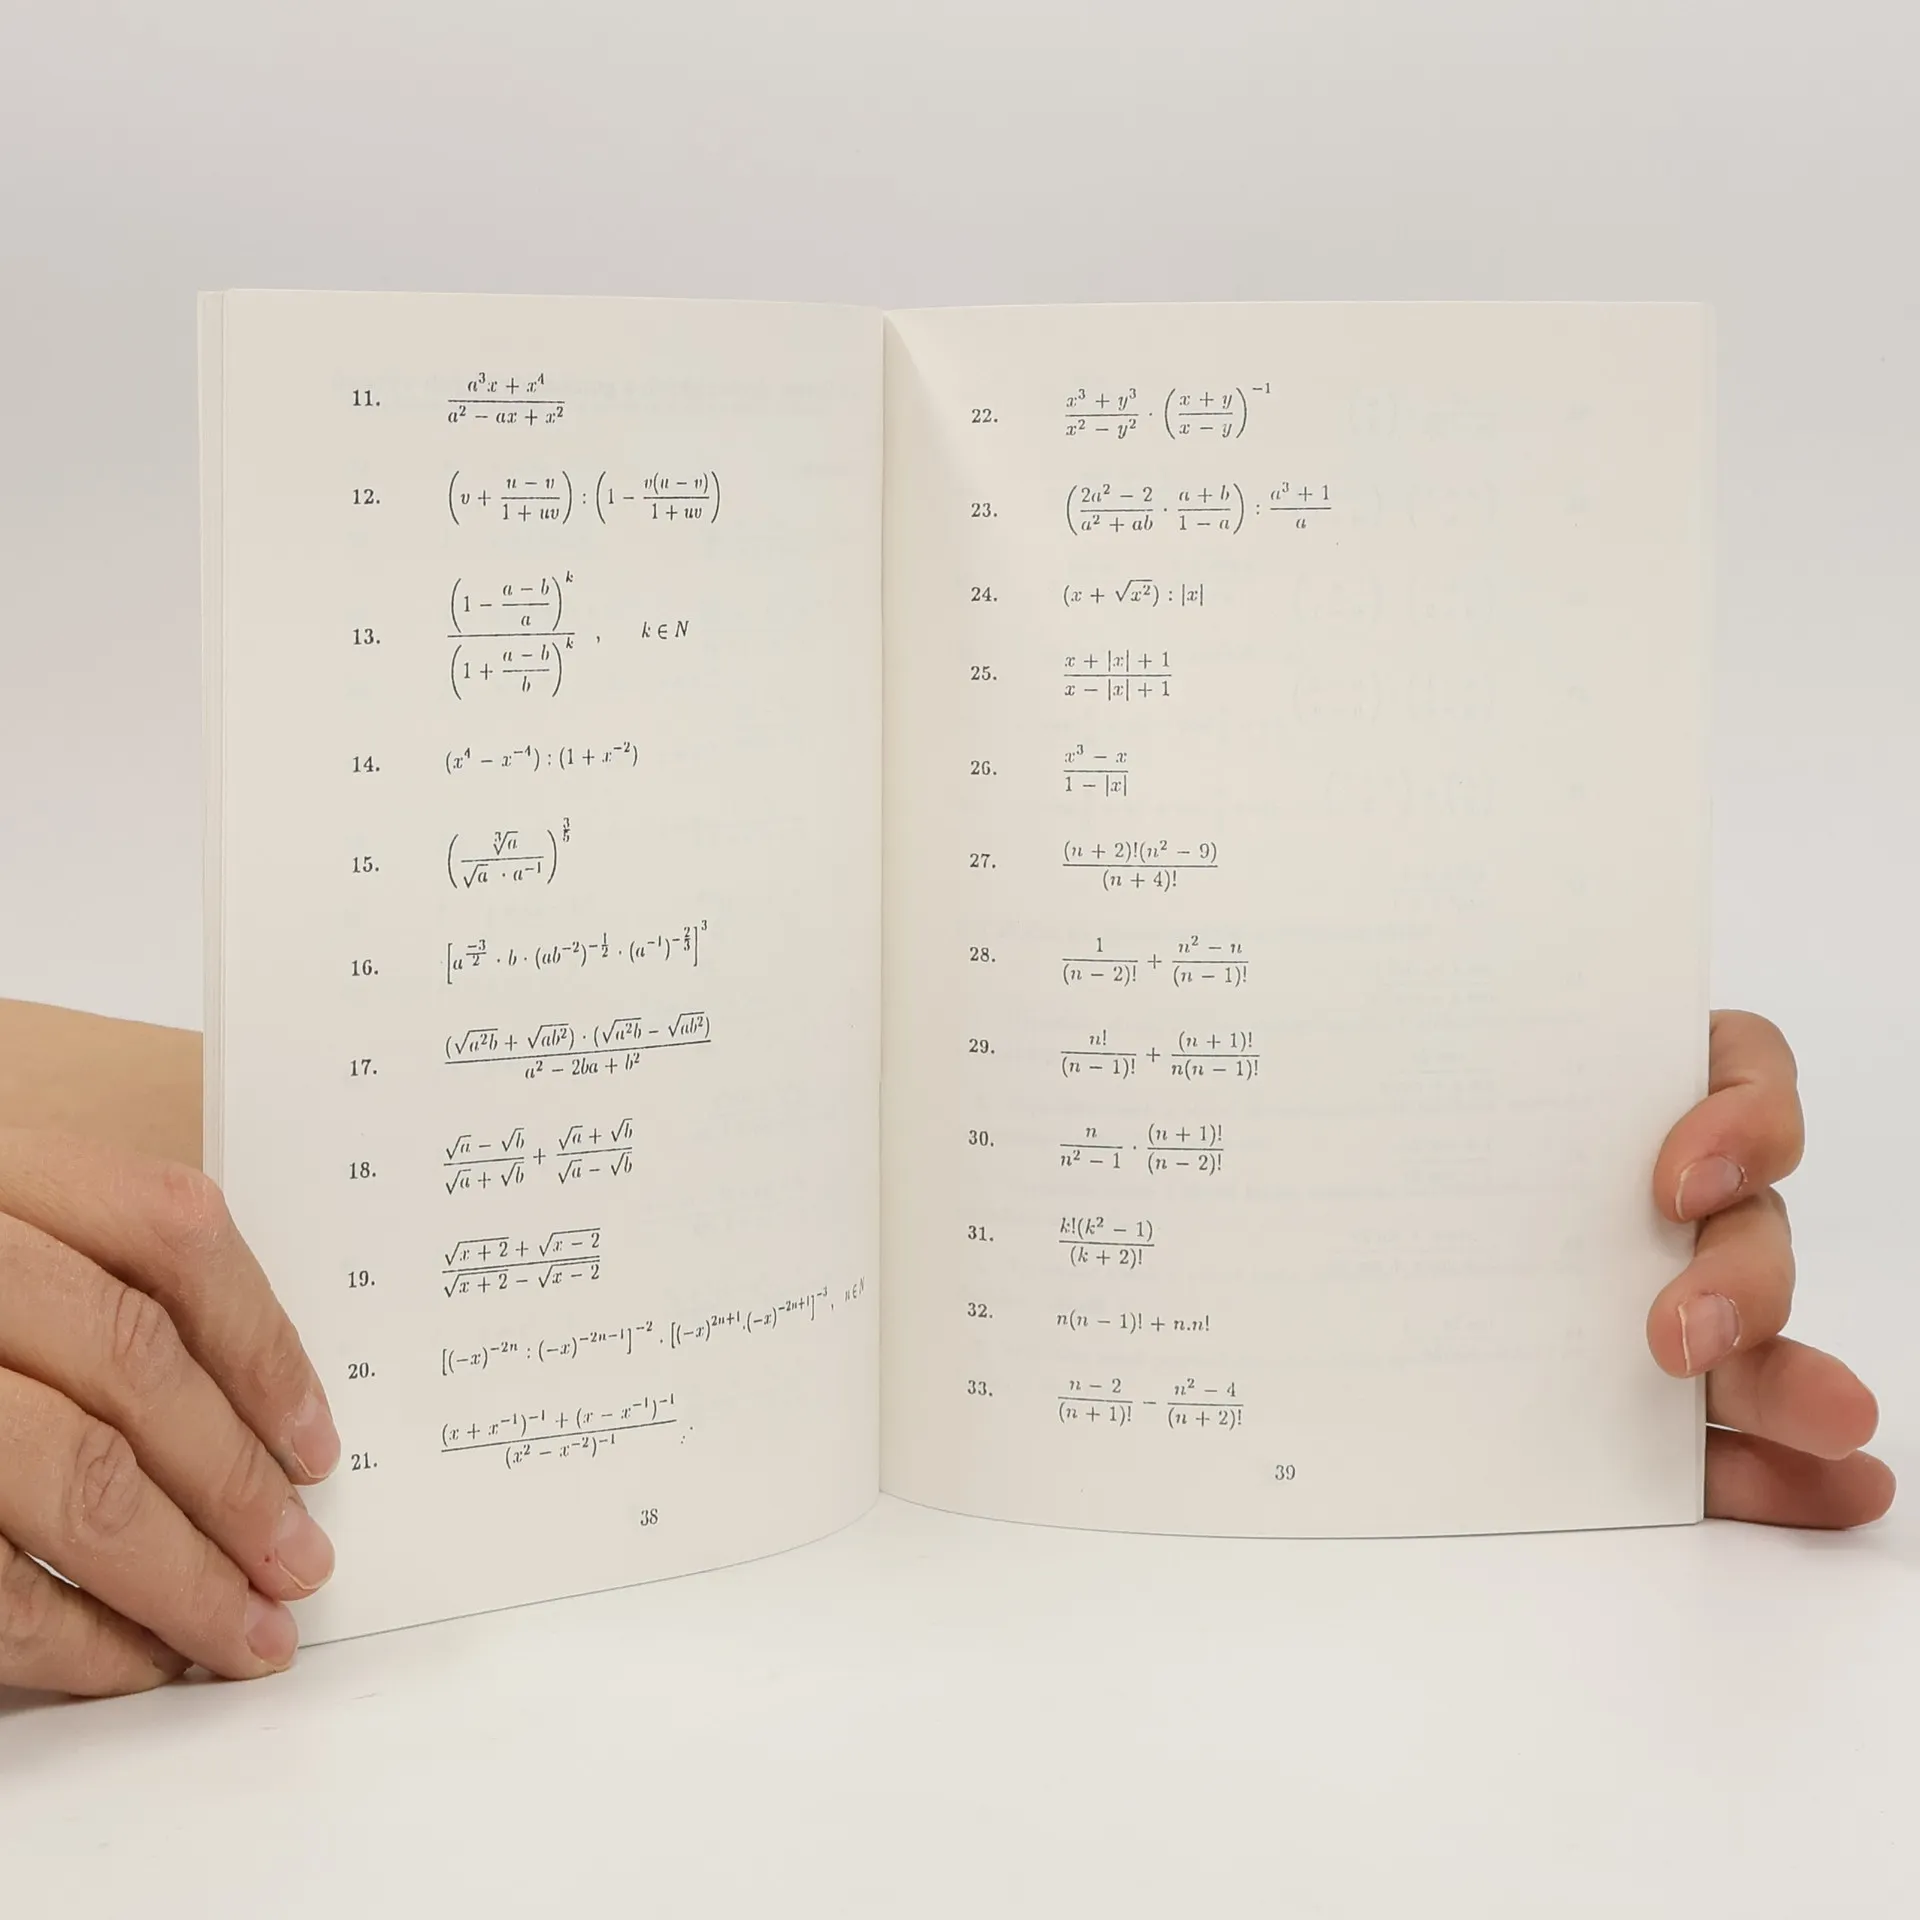 11. \frac{a^3x + x^4}{a^2 - ax + x^2}
12. \left(v + \frac{u - v}{1 + uv}\right) : \left(1 - \frac{v(u - v)}{1 + uv}\right)
13. \frac{\left(1 - \frac{a - b}{a}\right)^k}{\left(1 + \frac{a - b}{b}\right)^k} , k ∈ N
14. (x^4 - x^{-4}) : (1 + x^{-2})
15. \left(\frac{\sqrt[3]{a}}{\sqrt{a} \cdot a^{-1}}\right)^{\frac{3}{5}}
16. \left[a^{\frac{-3}{2}} \cdot b \cdot (ab^{-2})^{-\frac{1}{2}} \cdot (a^{-1})^{-\frac{2}{3}}\right]^3
17. \frac{(\sqrt{a^2b} + \sqrt{ab^2}) \cdot (\sqrt{a^2b} - \sqrt{ab^2})}{a^2 - 2ba + b^2}
18. \frac{\sqrt{a} - \sqrt{b}}{\sqrt{a} + \sqrt{b}} + \frac{\sqrt{a} + \sqrt{b}}{\sqrt{a} - \sqrt{b}}
19. \frac{\sqrt{x + 2} + \sqrt{x - 2}}{\sqrt{x + 2} - \sqrt{x - 2}}
20. [(-x)^{-2n} : (-x)^{-2n-1}]^{-2} \cdot [(-x)^{2n+1} \cdot (-x)^{-2n+1}]^{-3}, n ∈ N
21. \frac{(x + x^{-1})^{-1} + (x - x^{-1})^{-1}}{(x^2 - x^{-2})^{-1}}
38
22. \frac{x^3 + y^3}{x^2 - y^2} \cdot \left(\frac{x + y}{x - y}\right)^{-1}
23. \left(\frac{2a^2 - 2}{a^2 + ab} \cdot \frac{a + b}{1 - a}\right) : \frac{a^3 + 1}{a}
24. (x + \sqrt{x^2}) : |x|
25. \frac{x + |x| + 1}{x - |x| + 1}
26. \frac{x^3 - x}{1 - |x|}
27. \frac{(n + 2)!(n^2 - 9)}{(n + 4)!}
28. \frac{1}{(n - 2)!} + \frac{n^2 - n}{(n - 1)!}
29. \frac{n!}{(n - 1)!} + \frac{(n + 1)!}{n(n - 1)!}
30. \frac{n}{n^2 - 1} \cdot \frac{(n + 1)!}{(n - 2)!}
31. \frac{k!(k^2 - 1)}{(k + 2)!}
32. n(n - 1)! + n.n!
33. \frac{n - 2}{(n + 1)!} - \frac{n^2 - 4}{(n + 2)!}
39